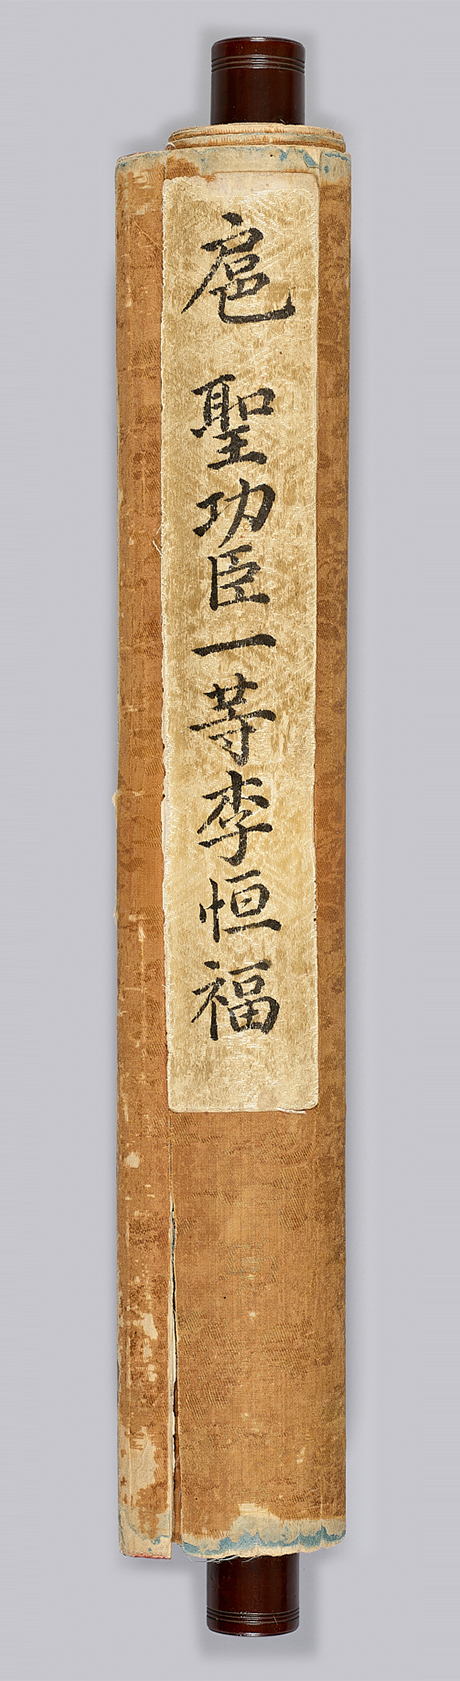 扈 聖功臣一等李恒福